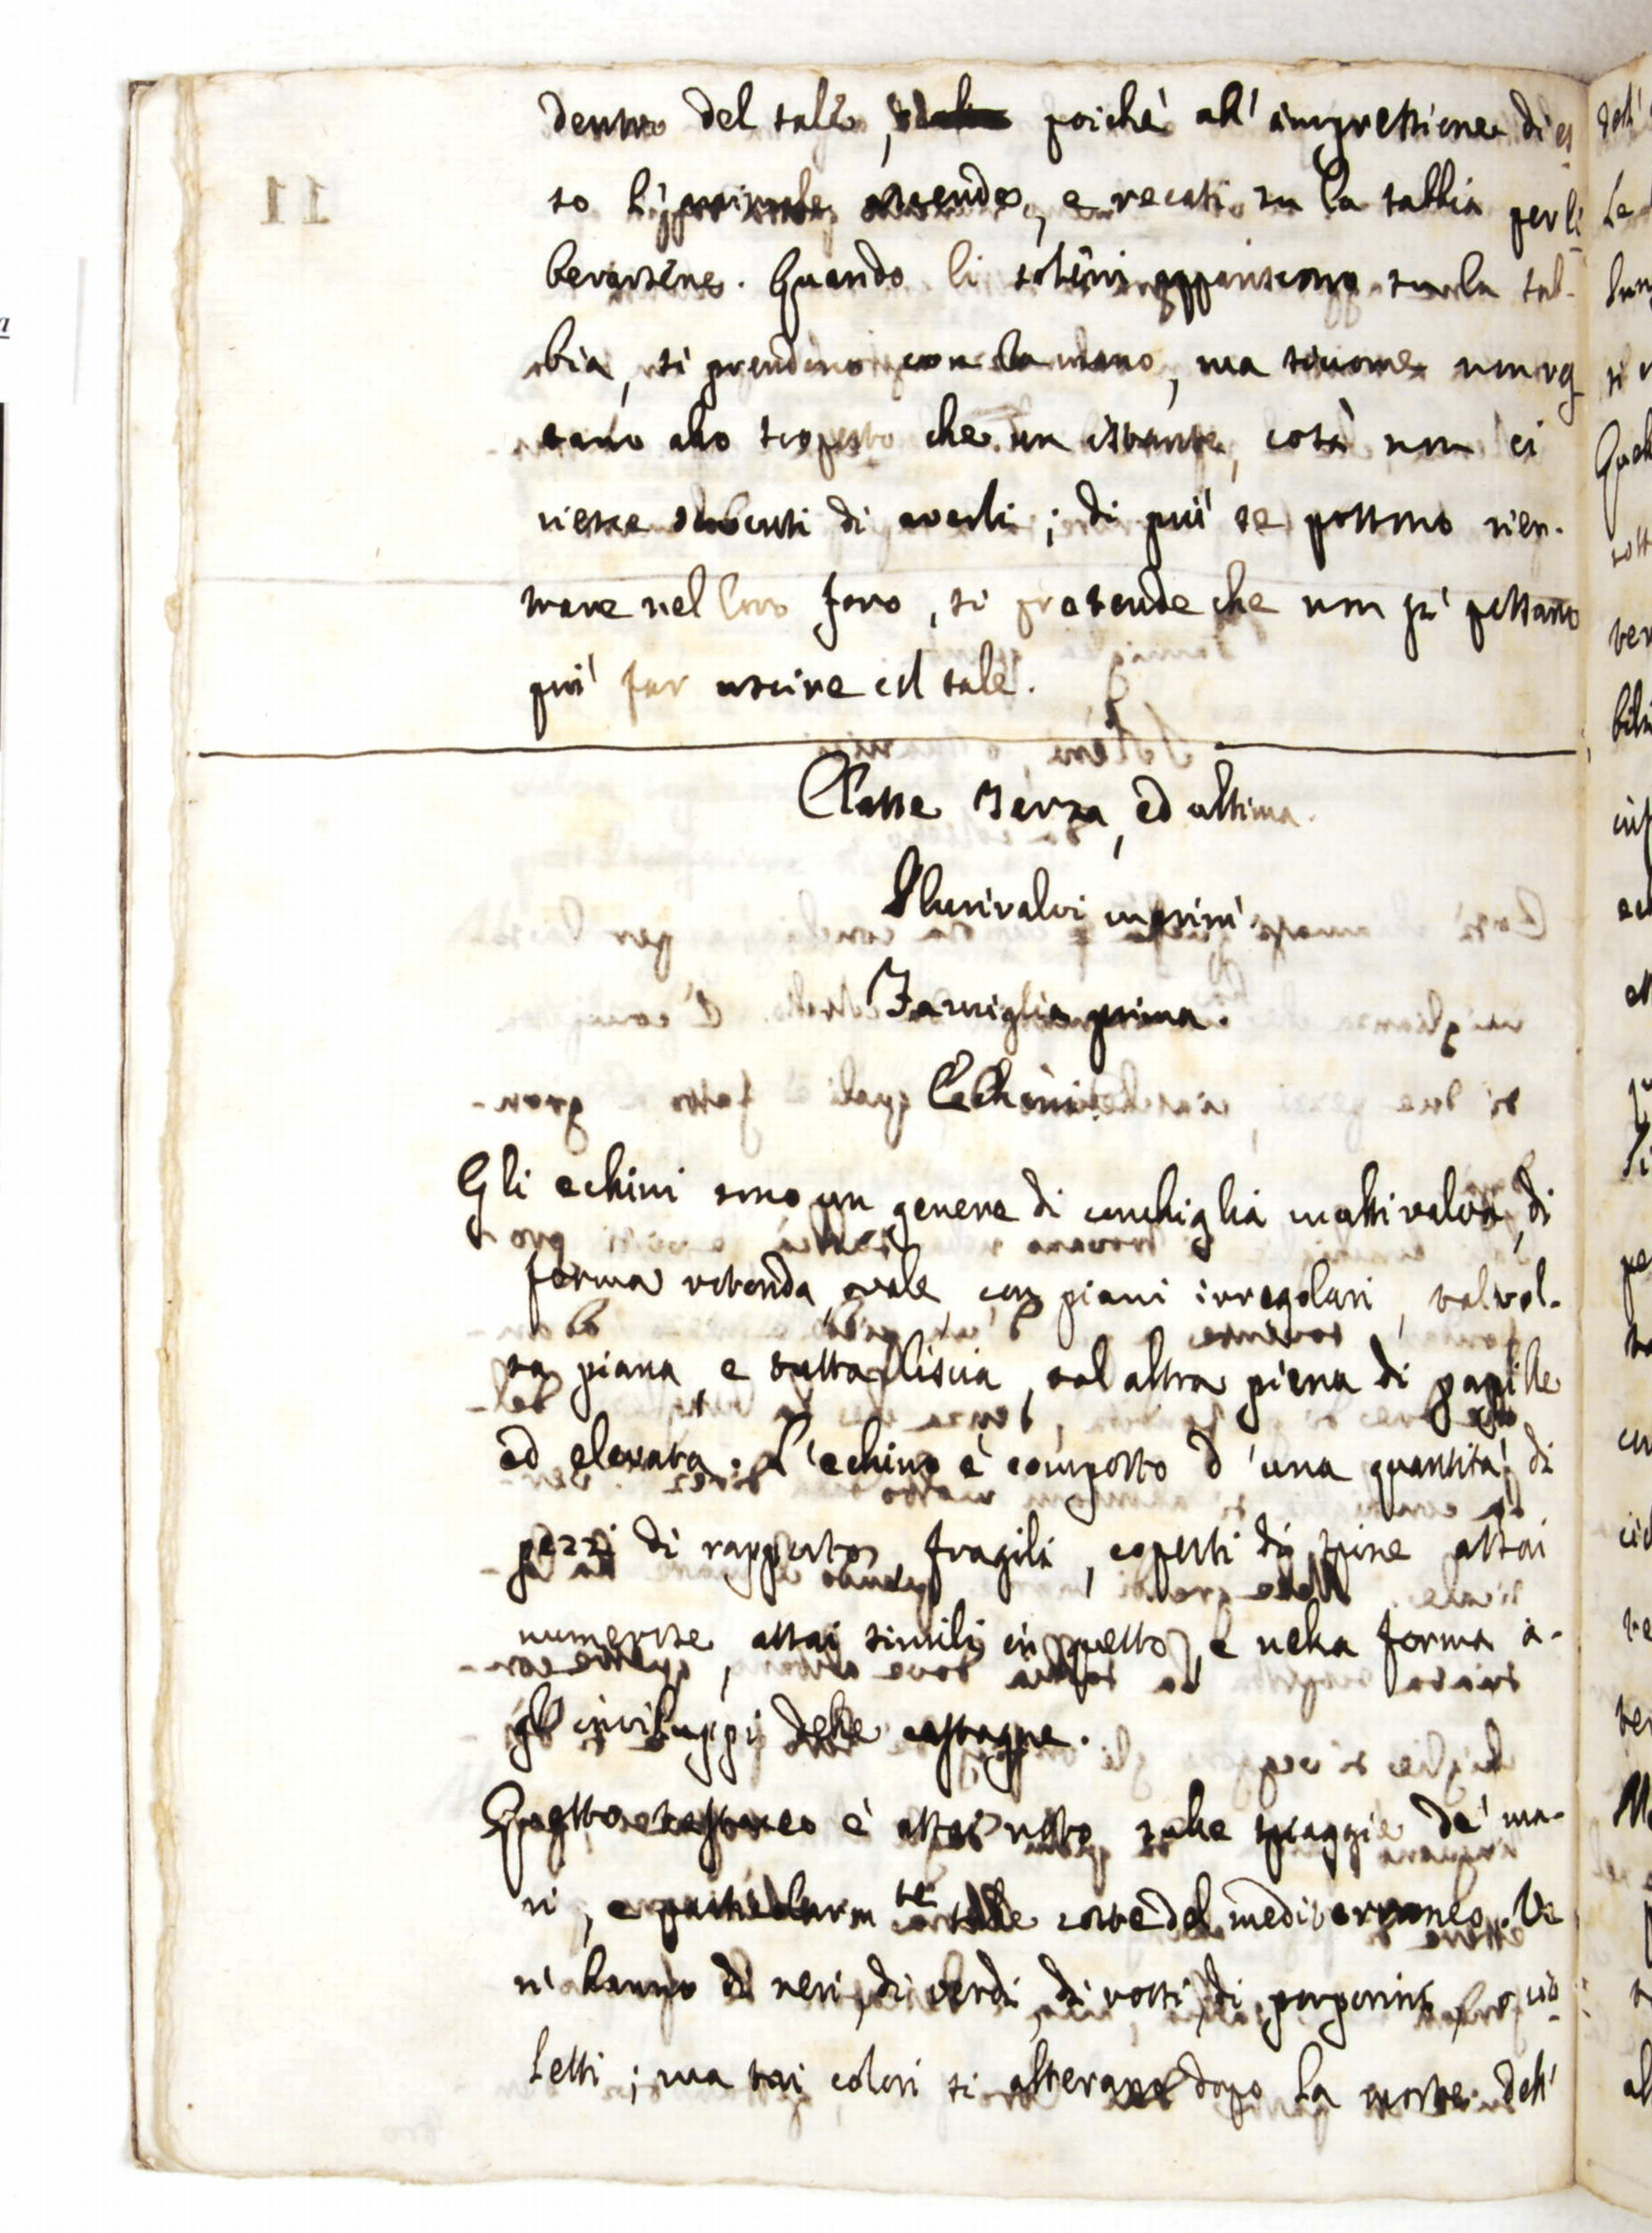 dentro del sale, poichè all' impressione di es
so li animale ascende, e recasi su la sabbia per li
berarsene. Quando li soleni appariscono su la sab-
bia, si prendono con la mano, ma siccome non re
stano allo scoperto che un istante, così non ci
riesce di averli; di più se possono rien-
trare nel loro foro, si pretende che non si possano
più far uscire col sale.
Classe Terza, ed ultima.
Plurivalvi marini.
Famiglia prima.
Echini.
Gli echini sono un genere di conchiglia multivalva, di
forma rotonda, ovale, con piani irregolari, talvol-
ta piana, e tutta liscia, tal altra piena di papille
ed elevata. L'echino è composto d'una quantità di
pezzi di rapporto, fragili, coperti di spine assai
numerose, assai simili in questo, e nella forma a-
gli inviluppi delle castagne.
Questo testaceo è assai noto sulle spiaggie de' ma-
ri, e particolarm te sulle coste del mediterraneo. Ve
n' hanno di neri, di verdi, di rossi, di porporini, o vio-
letti; ma tai colori si alterano dopo la morte dell'
11